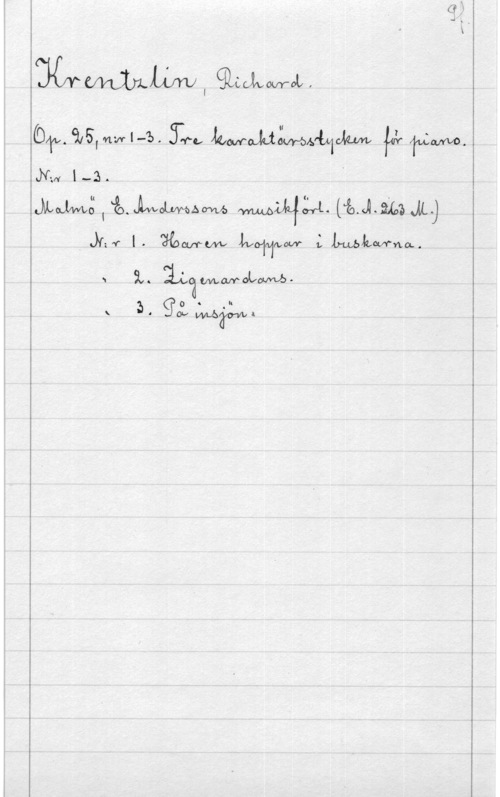 Pf.
Krentzlin, Richard.
Op. 25, n:r 1-3. Tre karaktärsstycken för piano.
N:r 1-3.
Malmö, E. Anderssons musikförl. (E. A. 263 M.)
N:r 1. Haren hoppar i buskarna.
" 2. Zigenardans.
" 3. På insjön.